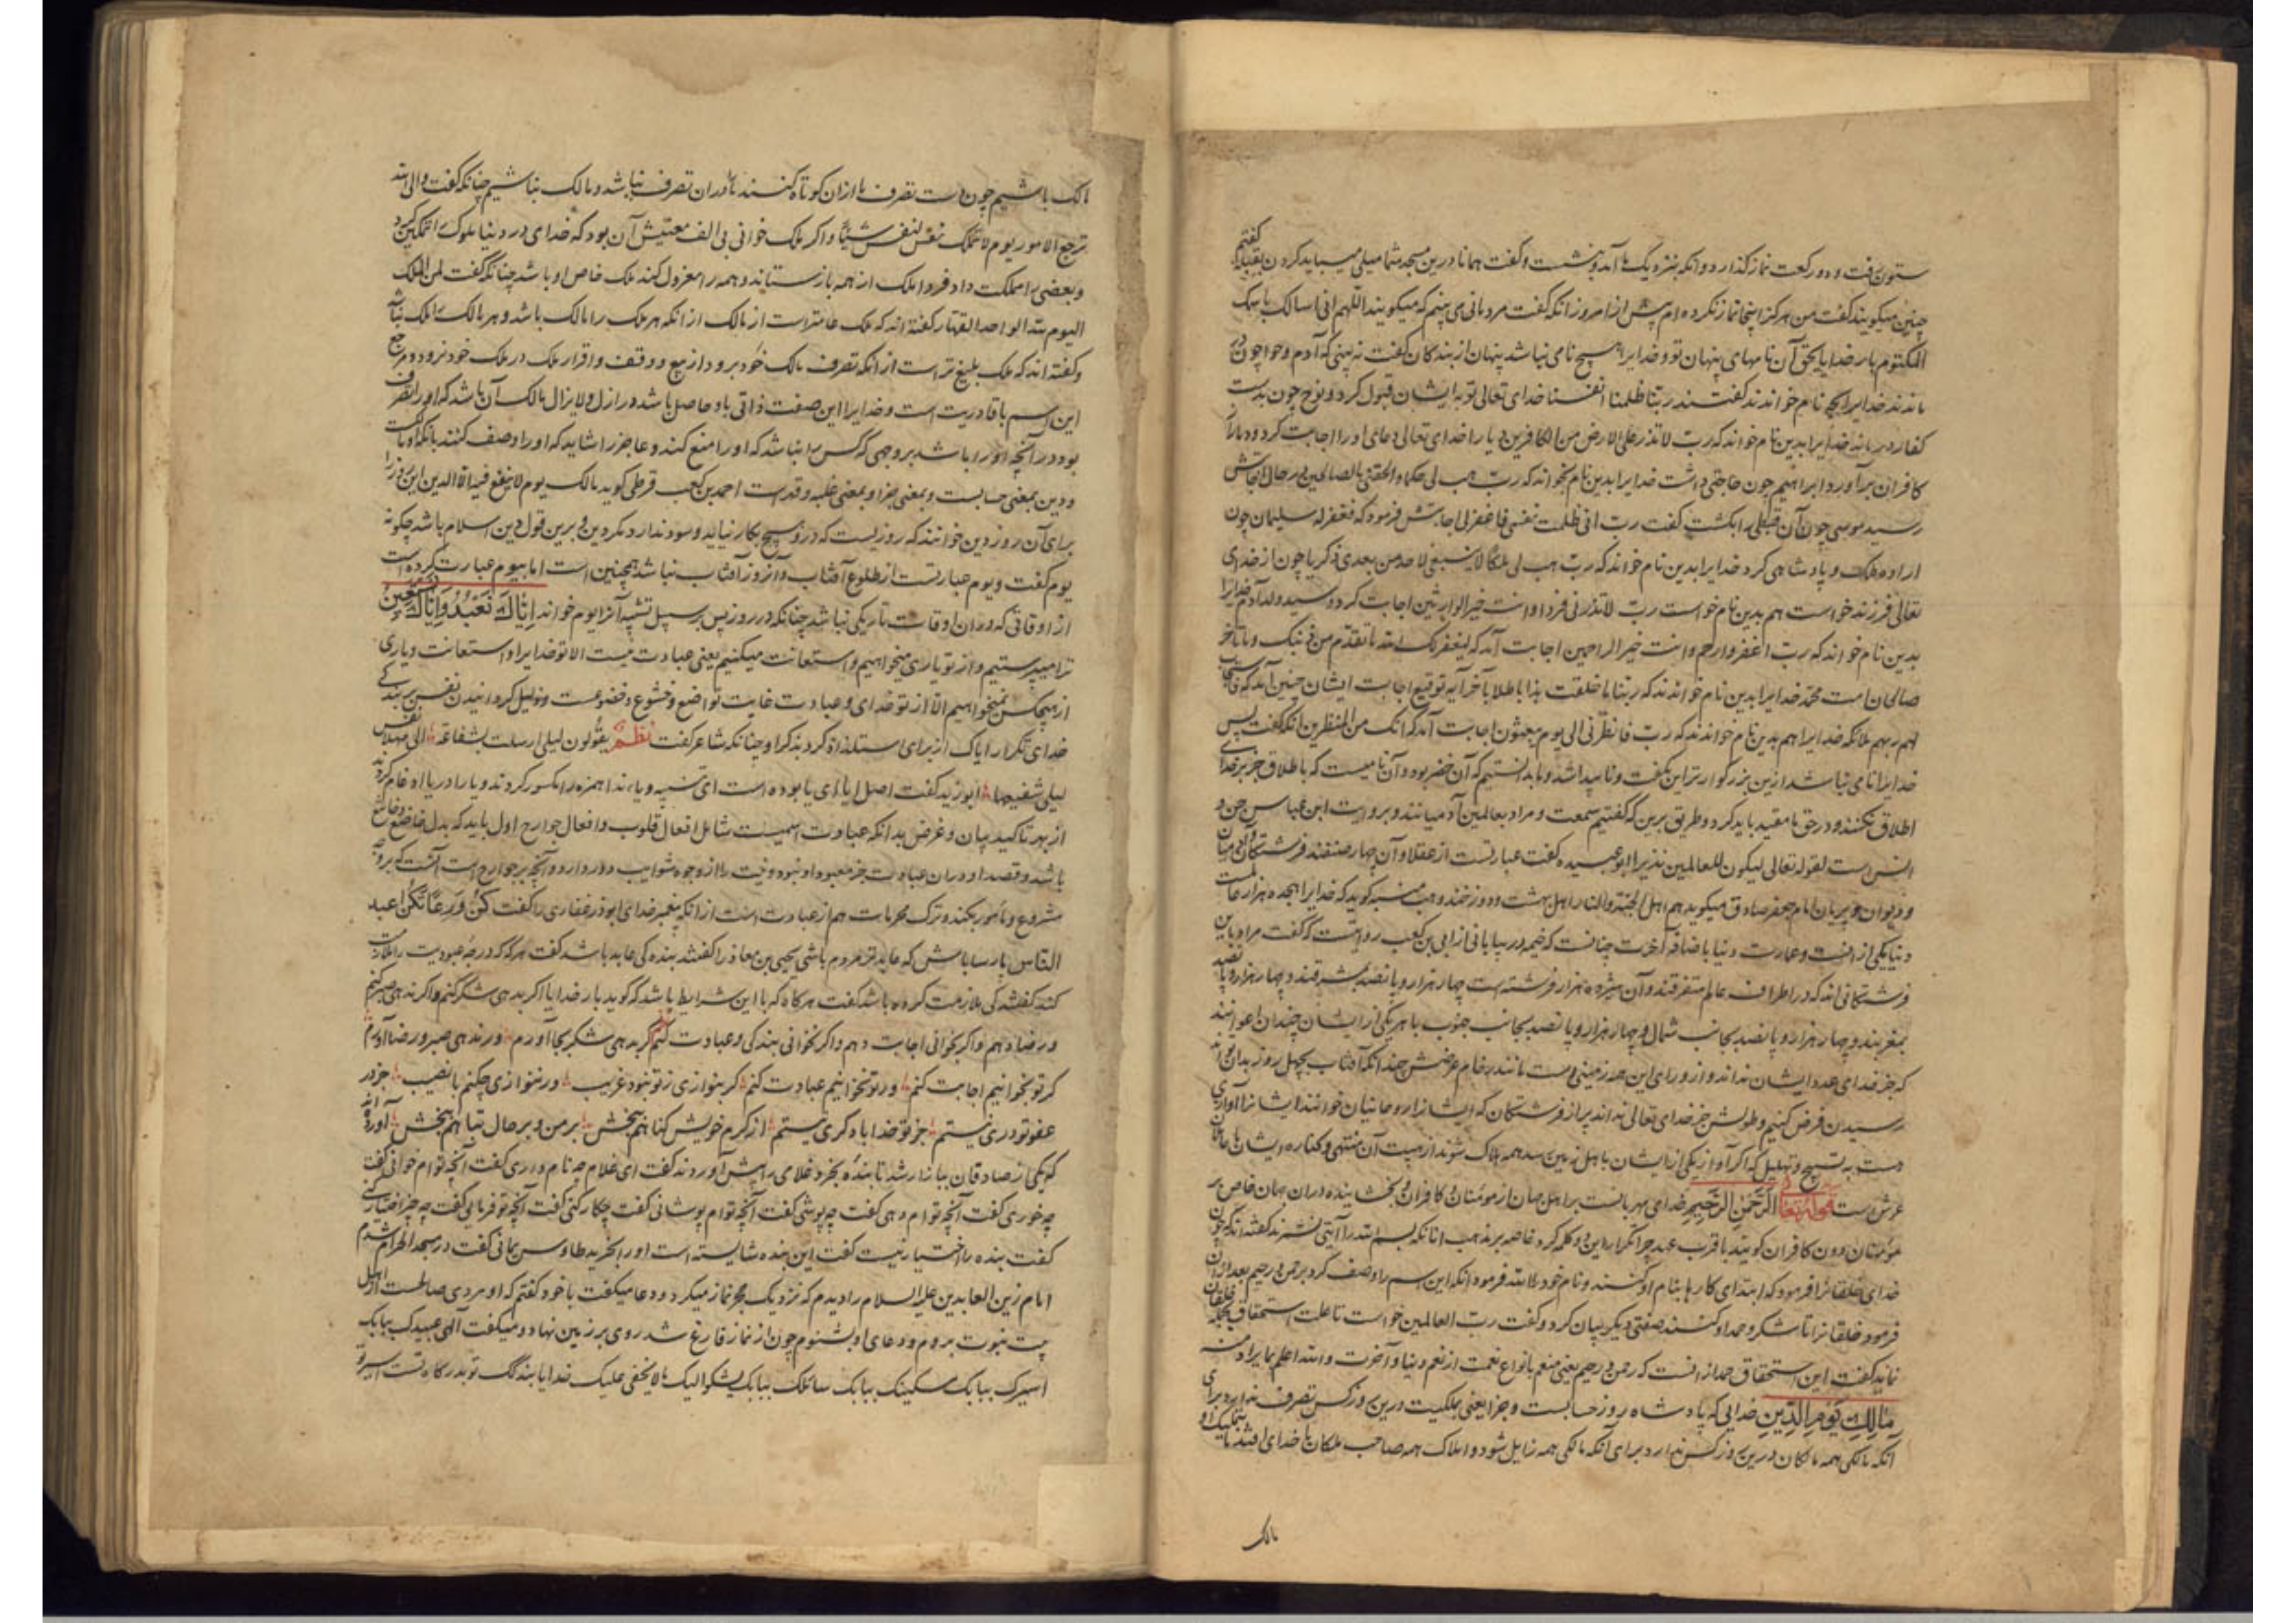 ستون رفت و دو رکعت نماز گذارد و آنکه بنزدیک ما آمد و بنشست و گفت همانا درین مسجد شما میلی میباید کردن بقبله گفتیم
چنین میگویند گفت من هرگز اینجا نماز نکرده ام پیش از امروز آنکه گفت مردمانی می بینم که میگویند اللهم انی اسالک باسمک
المکتوم بار خدایا بحق آن نامهای پنهان تو و خدایرا هیچ نامی نباشد پنهان از بندگان گفت نه بینی که آدم و حوا چون در
ماندند خدایرا بچه نام خواندند گفتند ربنا ظلمنا انفسنا خدای تعالی توبه ایشان قبول کرد و نوح چون بدست
کفار درماند خدایرا بدین نام خواند که رب لا تذر علی الارض من الکافرین دیارا خدای تعالی دعای او را اجابت کرد و دمار از
کافران برآورد ابراهیم چون حاجتی داشت خدایرا بدین نام بخواند که رب هب لی حکما و الحقنی بالصالحین در حال اجابتش
رسید موسی چون آن قبطی را بکشت گفت رب انی ظلمت نفسی فاغفر لی اجابتش فرمود که فغفر له سلیمان چون
اراده ملک و پادشاهی کرد خدایرا بدین نام خواند که رب هب لی ملکا لا ینبغی لاحد من بعدی زکریا چون از خدای
تعالی فرزند خواست هم بدین نام خواست رب لا تذرنی فردا و انت خیر الوارثین اجابت کرد و سید ولد آدم خدایرا
بدین نام خواند که رب اغفر و ارحم و انت خیر الراحمین اجابت آمد که لیغفر لک الله ما تقدم من ذنبک و ما تاخر
صالحان امت محمد خدایرا بدین نام خواندند که ربنا ما خلقت هذا باطلا تا آخر آیه توقیع اجابت ایشان چنین آمد که فاستجاب
لهم ربهم ملائکه خدایرا هم بدین نام خواندند که رب فانظرنی الی یوم یبعثون اجابت آمد که انک من المنظرین آنکه گفت پس
خدایرا نامی نباشد ازین بزرگوارتر این بگفت و ناپیدا شد و ما بدانستیم که آن خضر بود و آن نامیست که باطلاق جز بر خدای
اطلاق نکنند و در حق ما مقید باید کرد و طریق برین که گفتیم سمعت و مراد بعالمین آدمیانند و بروایت ابن عباس جن و
انس است لقوله تعالی لیکون للعالمین نذیرا ابو عبیده گفت عبارتست از عقلا و آن چهار صنفند فرشتگان و آدمیان
و دیوان و پریان امام جعفر صادق میگوید هم اهل الجنة و النار اهل بهشت و دوزخند وهب منبه گوید که خدایرا هجده هزار عالمست
دنیا یکی از آنست و عمارت دنیا باضافه آخرت چنانست که خیمه در بیابانی از ابی بن کعب روایتست که گفت مراد باین
فرشتگانی اند که در اطراف عالم متفرقند و آن هیژده هزار فرشته است چهار هزار و پانصد بمشرقند و چهار هزار و پانصد
بمغربند و چهار هزار و پانصد بجانب شمال و چهار هزار و پانصد بجانب جنوب با هر یکی از ایشان چندان اعوانند
که جز خدای عدد ایشان نداند و از ورای این همه زمینی است مانند رخام عرضش چندانکه آفتاب بچهل روز بدان تواند
رسیدن فرض کنیم و طولش جز خدای تعالی نداند پر از فرشتگان که ایشانرا روحانیان خوانند ایشانرا آوازی
هست به تسبیح و تهلیل که اگر آواز یکی از ایشان باهل زمین رسد همه هلاک شوند از هیبت آن منتهی و کناره ایشان تا حاملان
عرش است قوله تعالی الرحمن الرحیم خدای مهربانست بر اهل جهان از مومنان و کافران و بخشاینده در ان جهان خاص بر
مومنان دون کافران گویند با قرب عهد چرا تکرار این دو کلمه کرد خاصه بر مذهب آنانکه بسم الله را آیتی نشمرند گفته اند که چون
خدای خلقانرا فرمود که ابتدای کارها بنام او کنند و نام خود الله فرمود آنکه این اسم را وصف کرد برحمن و رحیم بعد از آن
فرمود خلقانرا تا شکر و حمد او کنند صفتی دیگر بیان کرد و گفت رب العالمین خواست تا علت استحقاق حمد خلقان
نماید گفت این استحقاق حمد از آنست که رحمن و رحیم یعنی منعم بانواع نعمت از نعم دنیا و آخرت و الله اعلم بمراده منه
مالک یوم الدین خدایی که پادشاه روز حسابست و جزا یعنی بملکیت درین روز کس تصرف ندارد برای
آنکه مالکی همه مالکان درین روز کس ندارد برای آنکه مالکی همه زایل شود و املاک همه صاحب ملکان با خدای افتد ما بتملیک او
مالک
مالک باشیم چون دست تصرف ما ازان کوتاه کنند ما را دران تصرف نباشد و مالک نباشیم چنانکه گفت و الی الله
ترجع الامور یوم لا تملک نفس لنفس شیئا و اگر ملک خوانی بی الف معنیش آن بود که خدای در دنیا ملوک را تمکین کرد
و بعضی را مملکت داد فردا ملک از همه بازستاند و همه را معزول کند ملک خاص او باشد چنانکه گفت لمن الملک
الیوم لله الواحد القهار گفته اند که ملک عامتر است از مالک از آنکه هر ملک را مالک باشد و هر مالک را ملک نباشد
و گفته اند که ملک بلیغ تر است از آنکه تصرف مالک خود برود از بیع و وقف و اقرار ملک در ملک خود نرود و مرجع
این اسم با قادریت است و خدایرا این صفت ذاتی باو حاصل باشد در ازل و لا یزال مالک آن باشد که او را تصرف
بود در آنچه او را باشد بر وجهی که کس را نباشد که او را منع کند و عاجز را شاید که او را وصف کنند بآنکه او مالکست
و دین بمعنی حسابست و بمعنی جزا و بمعنی غلبه و قدرت احمد بن کعب قرظی گوید مالک یوم لا ینفع فیه الا الدین این روز را
برای آن روز دین خوانند که روزیست که درو هیچ بکار نیاید و سود ندارد مگر دین و برین قول دین اسلام باشد چگونه
یوم گفت و یوم عبارتست از طلوع آفتاب و آنروز آفتاب نباشد همچنین است اما بیوم عبارت کرده است
از اوقاتی که در ان اوقات تاریکی نباشد چنانکه در روز پس بر سبیل تشبیه آنرا یوم خواند ایاک نعبد و ایاک نستعین
ترا میپرستیم و از تو یاری میخواهیم و استعانت میکنیم یعنی عبادت نیست الا تو خدایرا و استعانت و یاری
از هیچکس نمیخواهیم الا از تو خدای و عبادت غایت تواضع و خشوع و خضوعست و ذلیل گردانیدن نفس ببندگی
خدای تکرار ایاک از برای استلذاذ کرد بذکر او چنانکه شاعر گفت نظم یقولون لیلی ارسلت بشفاعة الی فهلا نفس
لیلی شفیعها ابو زید گفت اصل ایا ای یا بوده است ای تنبیه و یا ندا همزه را مکسور کردند و یا را در یا ادغام کردند
از بهر تاکید بیان و غرض بدانکه عبادت اسمیست شامل افعال قلوب و افعال جوارح اول باید که بدل خاضع و خاشع
باشد و قصد او دران عبادت جز معبود او نبود و نیت را از وجوه شوایب دور دارد و آنچه بر جوارح است آنست که بر وجه
مشروع و مامور بکند و ترک محرمات هم از عبادت است از آنکه پیغمبر خدای ابوذر غفاری را گفت کن ورعا تکن اعبد
الناس پارسا باش که عابدتر مردم باشی یحیی بن معاذ را گفتند بنده کی عابد باشد گفت هر گه که درجه عبودیت را ملازمت
کند گفتند کی ملازمت کرده باشد گفت هرگاه که با این شرایط باشد که گوید بار خدایا اگر بدهی شکر کنم و اگر ندهی صبر کنم
و رضا دهم و اگر بخوانی اجابت دهم و اگر نخوانی بندگی و عبادت کنم گر بدهی شکر بجا آورم ور ندهی صبر و رضا آورم
گر تو بخوانیم اجابت کنم ور تو نخوانیم عبادت کنم گر بنوازی ز تو نبود غریب ور ننوازی چکنم با نصیب جز در
عفو تو دری نیستم جز تو خدایا دگری نیستم از کرم خویش گناهم ببخش بر من و بر حال تباهم ببخش آورده اند
که یکی از صادقان ببازار شد تا بنده بخرد غلامی را پیش آوردند گفت ای غلام چه نام داری گفت آنچه توام خوانی گفت
چه خوری گفت آنچه توام دهی گفت چه پوشی گفت آنچه توام پوشانی گفت چکار کنی گفت آنچه تو فرمایی گفت چه چیز اختیار کنی
گفت بنده را اختیار نیست گفت این بنده شایسته است او را بخرید طاوس یمانی گفت در مسجد الحرام شدم
امام زین العابدین علیه السلام را دیدم که نزدیک حجر نماز میکرد و دعا میگفت با خود گفتم که او مردی صالحست از اهل
بیت نبوت بروم و دعای او بشنوم چون از نماز فارغ شد روی بر زمین نهاد و میگفت الهی عبیدک ببابک
اسیرک ببابک مسکینک ببابک سائلک ببابک یشکو الیک ما لا یخفی علیک خدایا بندگک تو بدرگاه تست اسیر تو